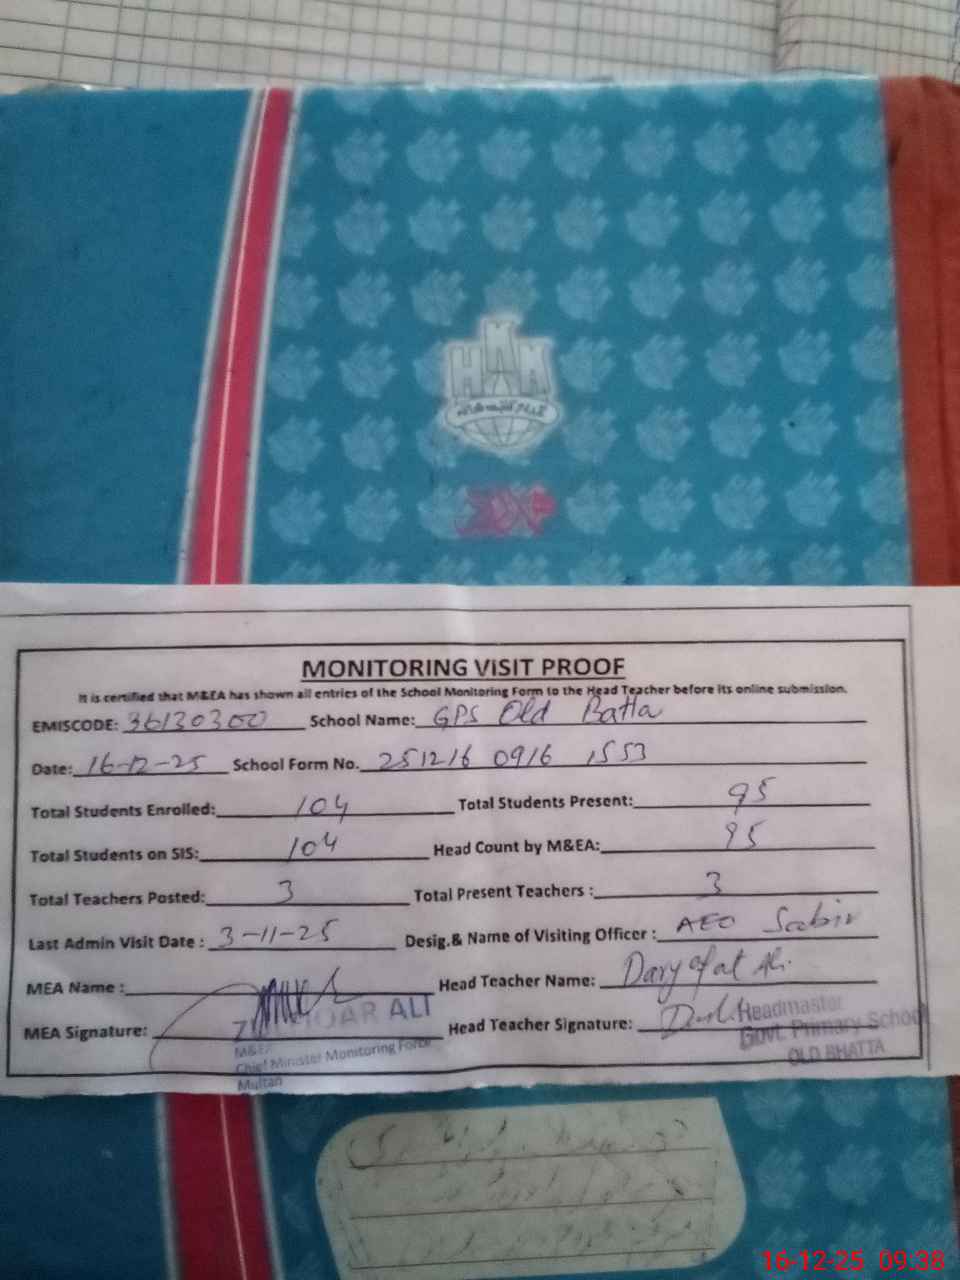 MONITORING VISIT PROOF
It is certified that M&EA has shown all entries of the School Monitoring Form to the Head Teacher before its online submission.
EMISCODE: 36130300 School Name: GPS Old Batta
Date: 16-12-25 School Form No. 251216 0916 1553
Total Students Enrolled: 104 Total Students Present: 95
Total Students on SIS: 104 Head Count by M&EA: 95
Total Teachers Posted: 3 Total Present Teachers : 3
Last Admin Visit Date : 3-11-25 Desig.& Name of Visiting Officer : AEO Sabir
MEA Name : Head Teacher Name: Daryafat Ali
MEA Signature: ALI Head Teacher Signature: Headmaster
M&EA Govt. Primary School
Chief Minister Monitoring Force OLD BHATTA
Multan
16-12-25 09.38